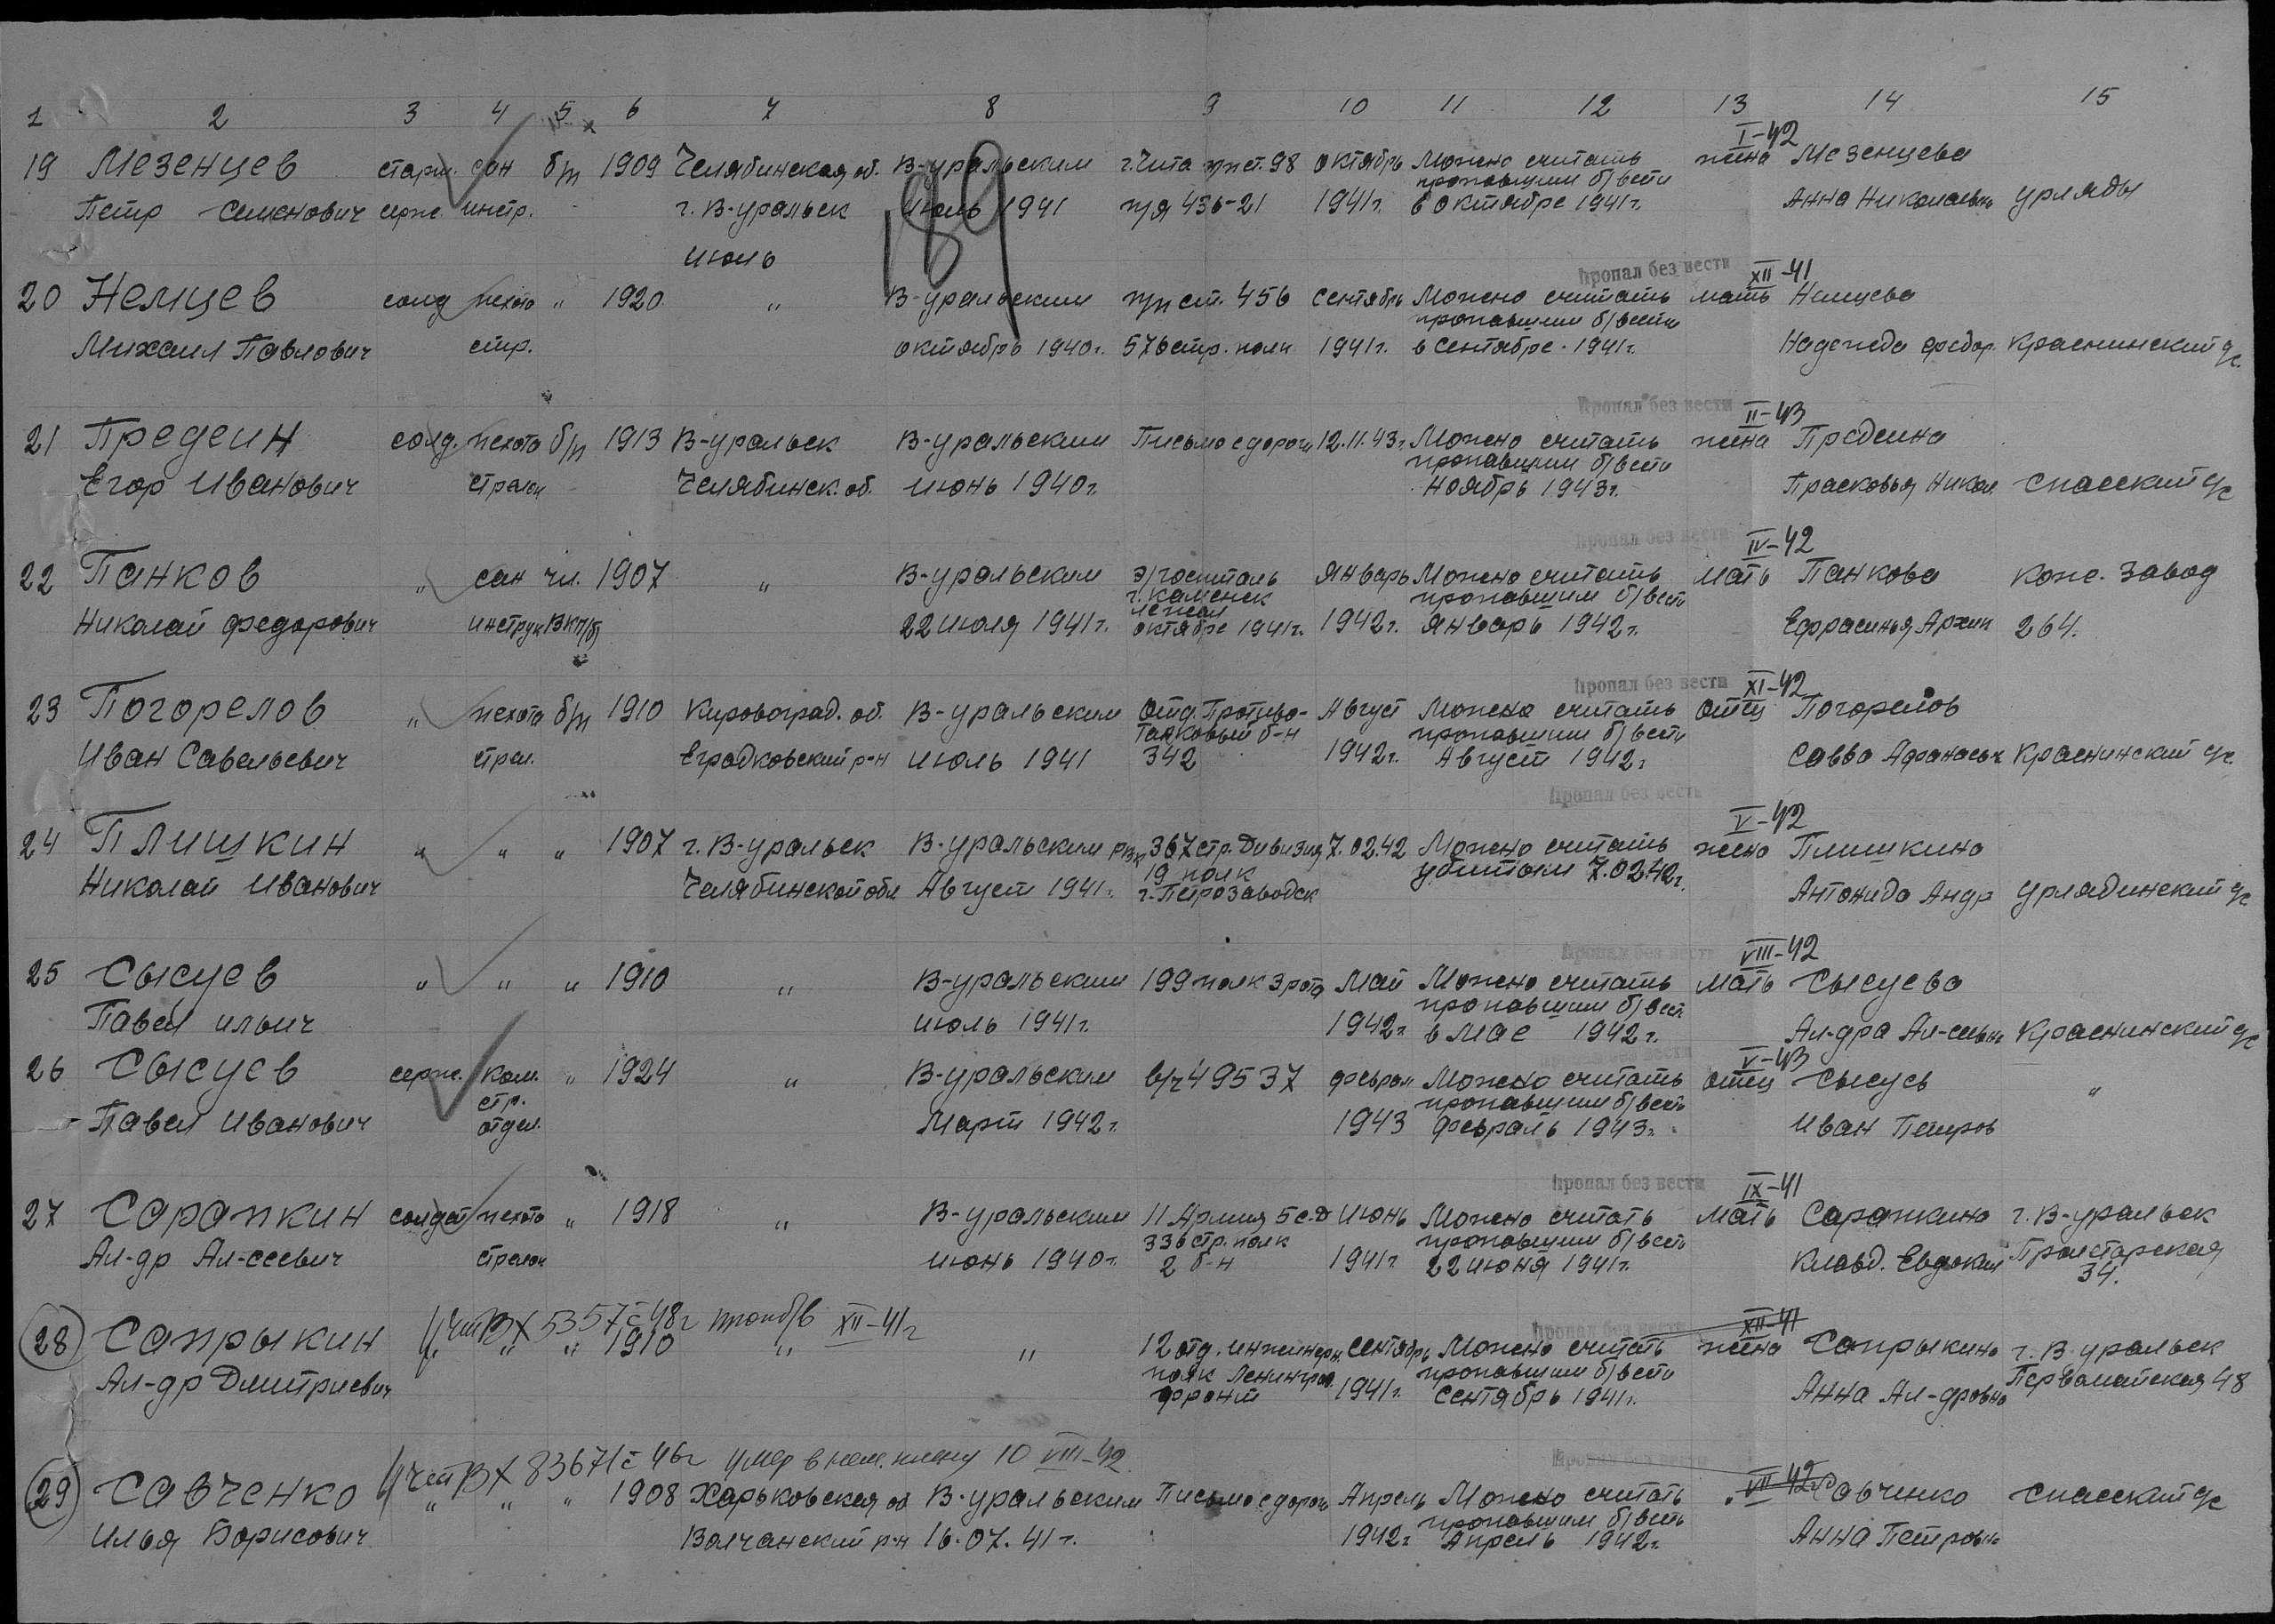 1 2 3 4 5 6 7 8 9 10 11 12 13 14 15
189
I-42
19 Мезенцев старш. сан б/п 1909 Челябинская об. В-уральским г. Чита п/п ст. 98 октябрь Можно считать жена Мезенцева
пропавшим б/вести
Петр Семенович серж. инстр. г. В-уральск июль 1941 п/я 436-21 1941г. в октябре 1941г. Анна Николаевн Урляды
июль
Пропал без вести XII-41
20 Немцев солд пехота " 1920 " В-уральским п/п ст. 456 сентябрь Можно считать мать Немцева
пропавшим б/вести
Михаил Павлович стр. октябрь 1940г. 576 стр. полк 1941г. в сентябре 1941г. Надежда Федор. Краснинский с/с
Пропал без вести II-43
21 Предеин солд. пехота б/п 1913 В-уральск В-уральским Письмо с дороги 12.11.43г. Можно считать жена Предеина
пропавшим б/вести
Егор Иванович стрелок Челябинск. об. июнь 1940г. Ноябрь 1943г. Прасковья Никол Спасский с/с
Пропал без вести IV-42
22 Панков " сан чл. 1907 " В-уральским э/госпиталь Январь Можно считать мать Панкова кож. завод
г. Каменск пропавшим б/вести
лежал
Николай Федорович инструк ВКП/б/ 22 июля 1941г. октябре 1941г. 1942г. Январь 1942г. Ефрасинья Архип 264.
Пропал без вести XI-42
23 Погорелов " пехота б/п 1910 Кировоград. об. В-уральским Отд. Противо- Август Можно считать отец Погорелов
танковый б-н пропавшим б/вести
Иван Савельевич стрел. Еградковский р-н июль 1941 342 1942г. Август 1942г Савва Афанасьч Краснинский с/с
Пропал без вести V-42
24 Плишкин " " " 1907 г. В-уральск В-уральским РВК 367 стр. Дивизия 7.02.42 Можно считать жена Плишкина
19 полк убитым 7.02.42г.
Николай Иванович Челябинской обл Август 1941г. г. Петрозаводск Антонида Андр Урлядинский с/с
Пропал без вести VIII-42
25 Сысуев " " " 1910 " В-уральским 199 полк 3 рота Май Можно считать мать Сысуева
пропавшим б/вест
Павел Ильич июль 1941г. 1942г в Мае 1942г. Ал-дра Ал-сеевн Краснинский с/с
V-43
26 Сысуев серж. ком. " 1924 " В-уральским в/ч 49537 феврал Можно считать отец Сысуев "
стр. пропавшим б/весть
Павел Иванович отдел. Март 1942г. 1943 февраль 1943г. Иван Петров
Пропал без вести IX-41
27 Сарапкин солдат пехота " 1918 " В-уральским 11 Армия 5 с.д Июнь Можно считать мать Сарапкина г. В-уральск
336 стр. полк пропавшим б/весть
Ал-др Ал-сеевич стрелок июнь 1940г. 2 б-н 1941г 22 июня 1941г. Клавд. Евдоким Пролетарская
34.
Учт ВХ 5357с 48г проп б/в XII-41г Пропал без вести XII-41
28 Сапрыкин " " " 1910 " " 12 отд. инженерн. сентябрь Можно считать жена Сапрыкина г. В-уральск
полк Ленинград. пропавшим б/вести
Ал-др Дмитриевич фронт 1941г. сентябрь 1941г. Анна Ал-дровна Первомайская 48
Учт ВХ 83671с 46г умер в нем. плену 10 VIII-42 Пропал без вести VII-42
29 Савченко " " " 1908 Харьковская об В-уральским Письмо с дороги Апрель Можно считать " Савченко Спасский с/с
пропавшим б/весть
Илья Борисович Волчанский р-н 16.07.41г. 1942г Апрель 1942г. Анна Петровн